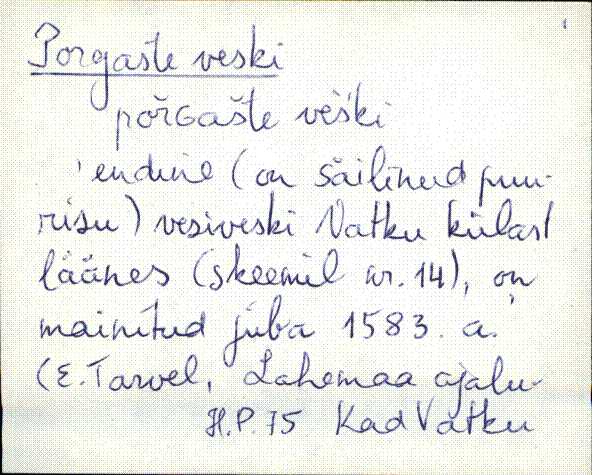 Porgaste veski
põřGašte vèš́ki
endine (on säilinud puu-
risu) vesiveski Vatku külast
läänes (skeemil nr. 14), on
mainitud juba 1583. a.
(E. Tarvel, Lahemaa ajalu-
H.P. 75 Kad Vatku